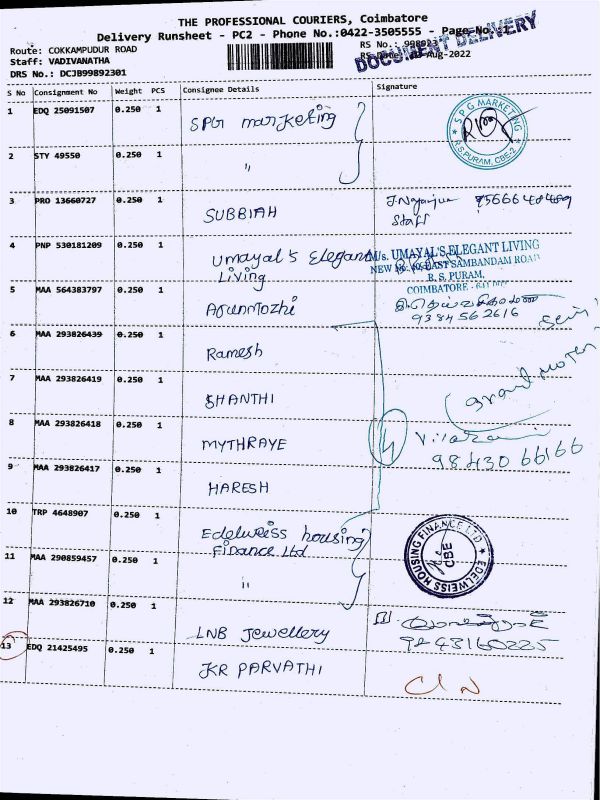 THE PROFESSIONAL COURIERS, Coimbatore
Delivery Runsheet - PC2 - Phone No.:0422-3505555 - Page No.
Route: COKKAMPUDUR ROAD
Staff: VADIVANATHA
DRS No.: DCJB99892301
RS No.: 998923
RS Date: Aug-2022
DOCUMENT DELIVERY
S No Consignment No Weight PCS Consignee Details Signature
1 EDQ 25091507 0.250 1 SPG marketing
S P G MARKETING
R.S.PURAM, CBE-2
2 STY 49550 0.250 1 "
3 PRO 13660727 0.250 1 SUBBIAH
Staff
4 PNP 530181209 0.250 1 Umayal's Elegant
Living
M/s. UMAYAL'S ELEGANT LIVING
EAST SAMBANDAM ROAD
R. S. PURAM,
COIMBATORE
5 MAA 564383797 0.250 1 Arunmozhi
9384562616
6 MAA 293826439 0.250 1 Ramesh
7 MAA 293826419 0.250 1 SHANTHI
8 MAA 293826418 0.250 1 MYTHRAYE
4
98430 66166
9 MAA 293826417 0.250 1 HARESH
10 TRP 4648907 0.250 1 Edelweiss housing
Finance Ltd
EDELWEISS HOUSING FINANCE LTD
CBE
11 MAA 290859457 0.250 1 "
12 MAA 293826710 0.250 1 LNB Jewellery
9843160225
13 EDQ 21425495 0.250 1 KR PARVATHI